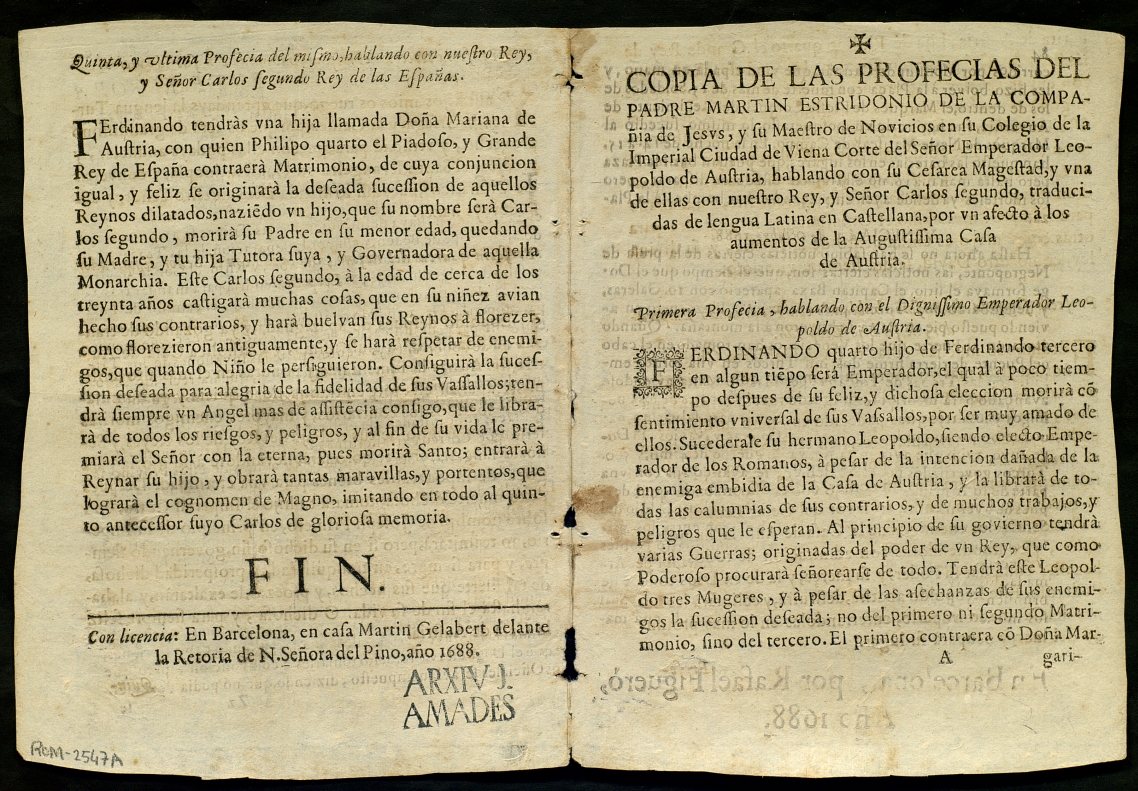 Quinta, y vltima Profecia del mismo, hablando con nuestro Rey,
y Señor Carlos segundo Rey de las Españas.
FErdinando tendràs vna hija llamada Doña Mariana de
Austria, con quien Philipo quarto el Piadoso, y Grande
Rey de España contraerà Matrimonio, de cuya conjuncion
igual, y feliz se originarà la deseada sucession de aquellos
Reynos dilatados, naziẽdo vn hijo, que su nombre serà Car-
los segundo, morirà su Padre en su menor edad, quedando
su Madre, y tu hija Tutora suya, y Governadora de aquella
Monarchia. Este Carlos segundo, à la edad de cerca de los
treynta años castigarà muchas cosas, que en su niñez avian
hecho sus contrarios, y harà buelvan sus Reynos à florezer,
como florezieron antiguamente, y se harà respetar de enemi-
gos, que quando Niño le persiguieron. Conseguirà la suces-
sion deseada para alegria de la fidelidad de sus Vassallos; ten-
drà siempre vn Angel mas de assistẽcia consigo, que le libra-
rà de todos los riesgos, y peligros, y al fin de su vida le pre-
miarà el Señor con la eterna, pues morirà Santo; entrarà à
Reynar su hijo, y obrarà tantas maravillas, y portentos, que
lograrà el cognomen de Magno, imitando en todo al quin-
to antecessor suyo Carlos de gloriosa memoria.
FIN.
Con licencia: En Barcelona, en casa Martin Gelabert delante
la Retoria de N. Señora del Pino, año 1688.
ARXIV J.
AMADES
ROM-2547A
COPIA DE LAS PROFECIAS DEL
PADRE MARTIN ESTRIDONIO DE LA COMPA-
ñia de Jesvs, y su Maestro de Novicios en su Colegio de la
Imperial Ciudad de Viena Corte del Señor Emperador Leo-
poldo de Austria, hablando con su Cesarea Magestad, y vna
de ellas con nuestro Rey, y Señor Carlos segundo, traduci-
das de lengua Latina en Castellana, por vn afecto à los
aumentos de la Augustissima Casa
de Austria.
Primera Profecia, hablando con el Dignissimo Emperador Leo-
poldo de Austria.
FERDINANDO quarto hijo de Ferdinando tercero
en algun tiẽpo serà Emperador, el qual à poco tiem-
po despues de su feliz, y dichosa eleccion morirà cõ
sentimiento vniversal de sus Vassallos, por ser muy amado de
ellos. Sucederale su hermano Leopoldo, siendo electo Empe-
rador de los Romanos, à pesar de la intencion dañada de la
enemiga embidia de la Casa de Austria, y la librarà de to-
das las calumnias de sus contrarios, y de muchos trabajos, y
peligros que le esperan. Al principio de su govierno tendrà
varias Guerras; originadas del poder de vn Rey, que como
Poderoso procurarà señorearse de todo. Tendrà este Leopol-
do tres Mugeres, y à pesar de las asechanzas de sus enemi-
gos la sucession deseada; no del primero ni segundo Matri-
monio, sino del tercero. El primero contraera cõ Doña Mar-
A gari-